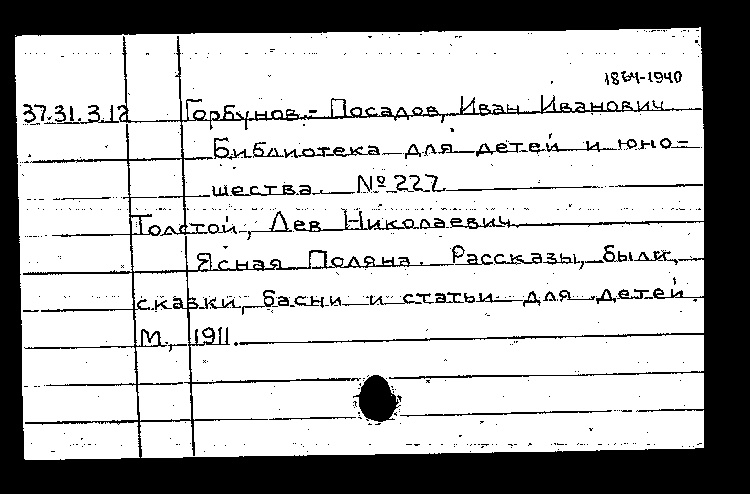 1864-1940
37.31.3.12 Горбунов-Посадов, Иван Иванович
Библиотека для детей и юно=
шества. №227
Толстой, Лев Николаевич
Ясная Поляна. Рассказы, были,
сказки, басни и статьи для детей.
М., 1911.